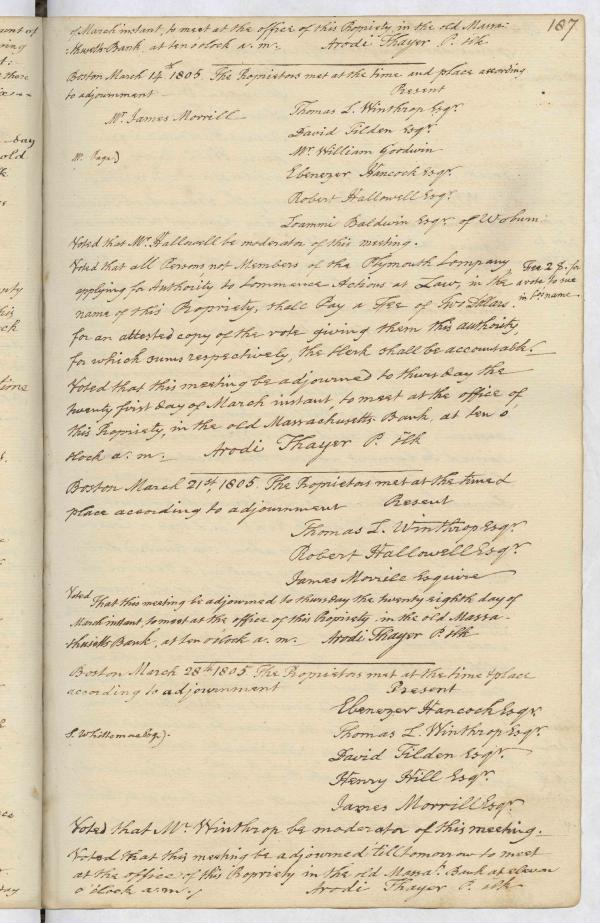 187
of March instant, to meet at the office of this Propriety in the old Massa-
-chusetts Bank, at ten oclock a. m. Arodi Thayer P. Clk
Boston March 14th 1805. The Proprietors met at the time and place according
to adjournment Present
Mr. James Morrill
Thomas L. Winthrop Esqr.
David Tilden Esqr.
Mr. William Goodwin
Ebenezer Hancock Esqr.
Robert Hallowell Esqr.
Loammi Baldwin Esqr. of Woburn
Voted that Mr. Hallowell be moderator of this meeting.
Voted that all Persons, not Members of the Plymouth Company,
applying for Authority to Commence Actions at Law, in the
name of this Propriety, shall Pay a Fee of Two Dollars,
for an attested copy of the vote giving them this authority,
for which sums respectively, the Clerk shall be accountable.
Fee 2 $. for
a vote to sue
in Ps name
Voted that this meeting be adjourned to thursday the
twenty first day of March instant, to meet at the office of
this Propriety, in the old Massachusetts Bank, at ten o
clock a. m. Arodi Thayer P. Clk
Boston March 21st, 1805. The Proprietors met at the time &
place according to adjournment Present
Thomas L. Winthrop Esqr.
Robert Hallowell Esqr.
James Morrill Esquire
Voted
That this meeting be adjourned to thursday the twenty eighth day of
March instant, to meet at the office of this Propriety in the old Massa-
-chusetts Bank, at ten oclock a. m. Arodi Thayer P. Clk
Boston March 28th 1805. The Proprietors met at the time & place
according to adjournment Present
Ebenezer Hancock Esqr.
S. Whittemore Esq.
Thomas L. Winthrop Esqr.
David Tilden Esqr.
Henry Hill Esqr.
James Morrill Esqr.
Voted that Mr. Winthrop be moderator of this meeting.
Voted that this meeting be adjourned till tomorrow to meet
at the office of this Propriety in the old Massa. Bank at eleven
o'clock a. m. Arodi Thayer P. Clk